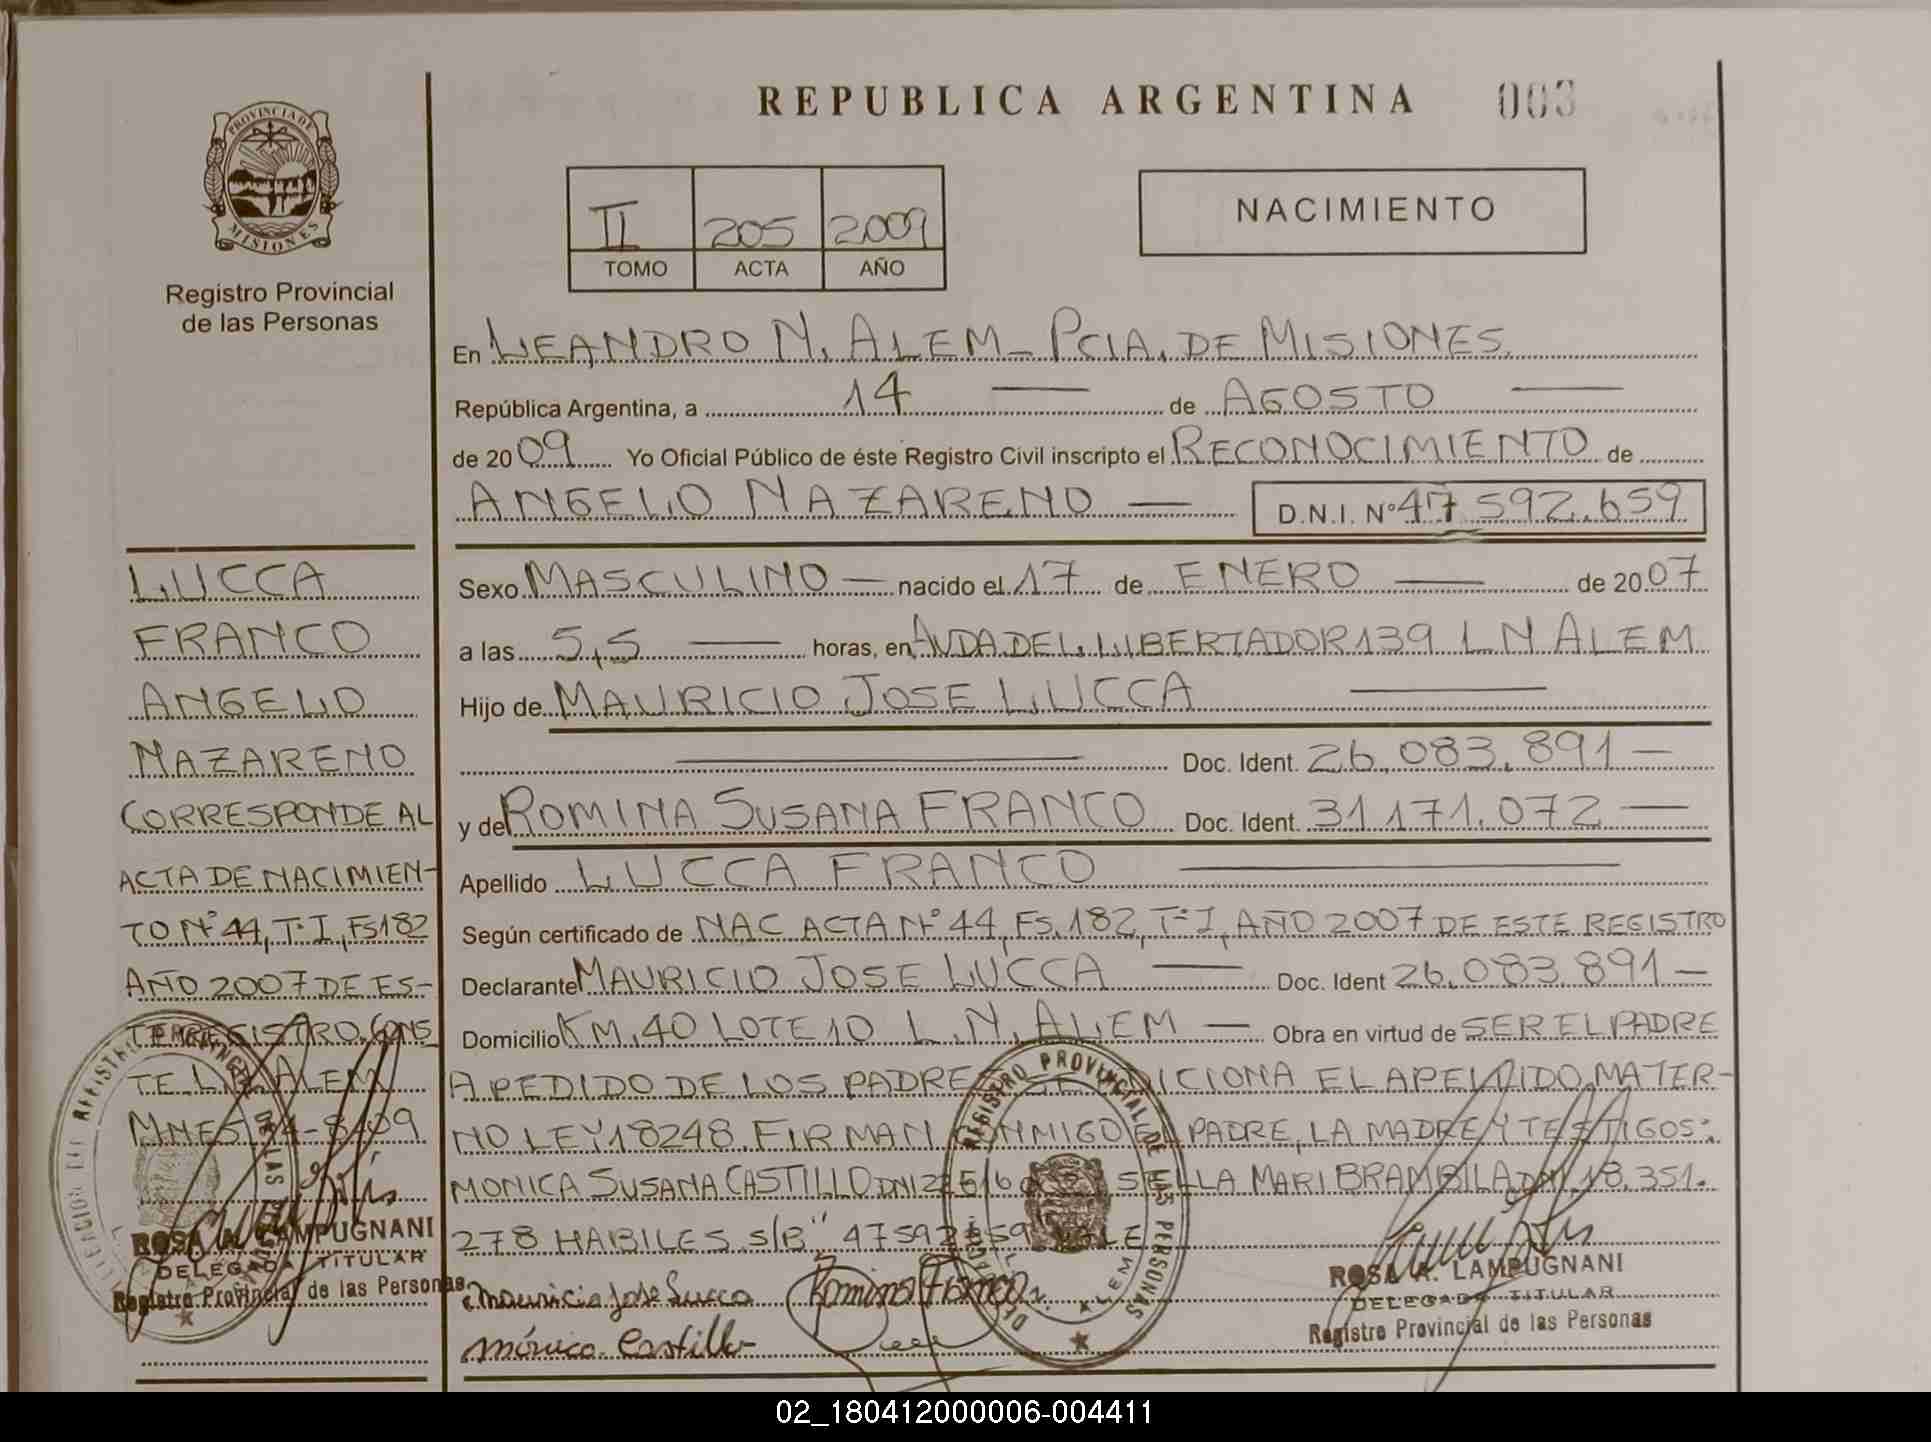 REPUBLICA ARGENTINA 003
PROVINCIA DE
MISIONES
Registro Provincial
de las Personas
II 205 2009
TOMO ACTA AÑO
NACIMIENTO
En LEANDRO N. ALEM - PCIA. DE MISIONES.
República Argentina, a 14 de AGOSTO
de 2009 Yo Oficial Público de éste Registro Civil inscripto el RECONOCIMIENTO de
ANGELO NAZARENO — D.N.I. Nº 47 592.659
Sexo MASCULINO — nacido el 17 de ENERO — de 2007
a las 5,5 — horas, en AVDA DEL LIBERTADOR 139 L N ALEM
Hijo de MAURICIO JOSE LUCCA —
— Doc. Ident. 26.083.891 —
y de ROMINA SUSANA FRANCO Doc. Ident. 31.171.072 —
Apellido LUCCA FRANCO —
Según certificado de NAC ACTA Nº 44, FS. 182, Tº I, AÑO 2007 DE ESTE REGISTRO
Declarante MAURICIO JOSE LUCCA — Doc. Ident 26.083.891 —
Domicilio KM. 40 LOTE 10 L.N. ALEM — Obra en virtud de SER EL PADRE
A PEDIDO DE LOS PADRES SE ADICIONA EL APELLIDO MATER-
NO LEY 18248. FIRMAN CONMIGO EL PADRE, LA MADRE Y TESTIGOS:
MONICA SUSANA CASTILLO DNI MARI BRAMBILA DNI 18.351.
278 HABILES S/B "47592659" VALE
Mauricio José Lucca Romina Franco
Mónica Castillo
ROSA A. LAMPUGNANI
DELEGADA TITULAR
Registro Provincial de las Personas
REGISTRO PROVINCIAL DE LAS PERSONAS
ALEM
LUCCA
FRANCO
ANGELO
NAZARENO
CORRESPONDE AL
ACTA DE NACIMIEN-
TO Nº 44, Tº I, FS 182
AÑO 2007 DE ES-
TE REGISTRO. CONS
TE L.N. ALEM
MNES 14-8-09
ROSA A. LAMPUGNANI
DELEGADA TITULAR
Registro Provincial de las Personas
02_180412000006-004411